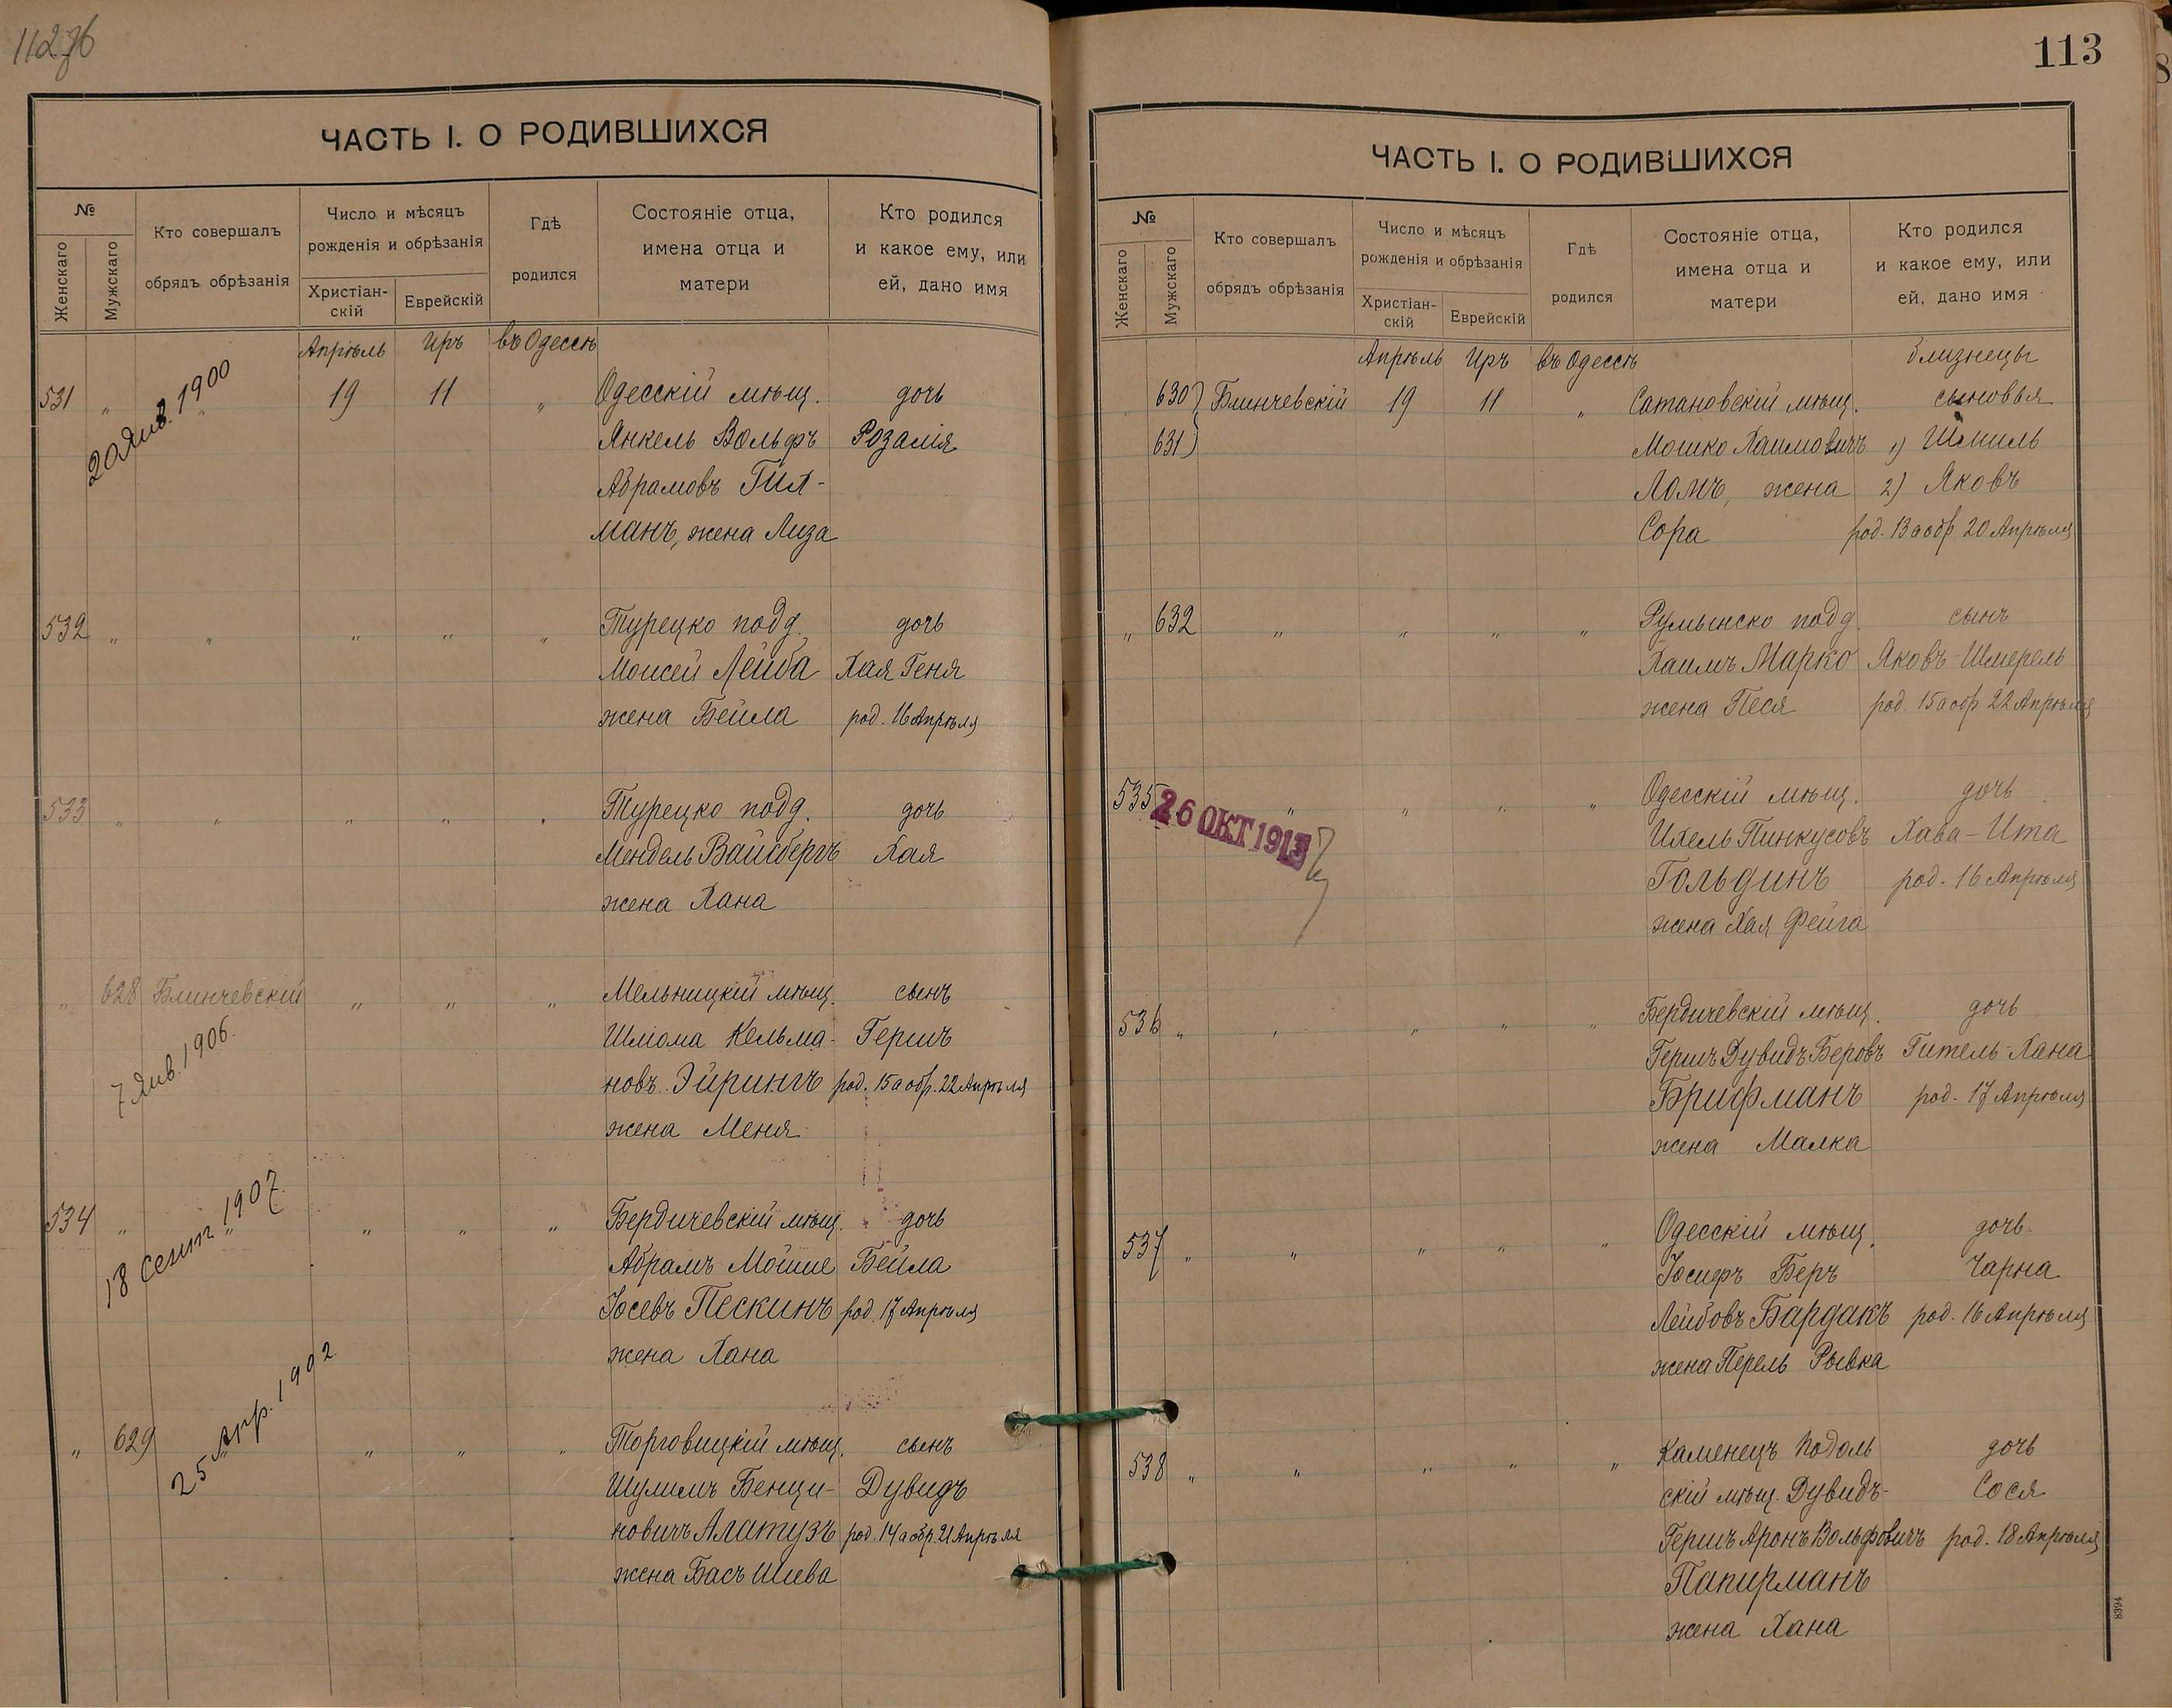 112 об
ЧАСТЬ I. О РОДИВШИХСЯ
№
Женскаго
Мужскаго
Кто совершалъ
обрядъ обрѣзанія
Число и мѣсяцъ
рожденія и обрѣзанія
Христіан-
скій
Еврейскій
Гдѣ
родился
Состояніе отца,
имена отца и
матери
Кто родился
и какое ему, или
ей, дано имя
Апрѣль Иръ въ Одессѣ
531 " " 19 11 " Одесскій мѣщ. дочь
20 Янв. 1900
Янкель Вольфъ Розалія
Абрамовъ Гил-
манъ, жена Лиза
532 " " " " " Турецко подд. дочь
Моисей Лейба Хая Геня
жена Бейла род. 16 Апрѣля
533 " " " " " Турецко подд. дочь
Мендель Вайсбергъ Хая
жена Хана
" 628 Блинчевскій " " " Мельницкій мѣщ. сынъ
7 Янв. 1906.
Шліома Кельма- Гершъ
новъ Эйрингъ род. 15 а обр. 22 Апрѣля
жена Меня
534 " " " " " Бердичевскій мѣщ. дочь
18 Сент 1907
Абрамъ Мойше Бейла
Іосевъ Пескинъ род. 17 Апрѣля
жена Хана
" 629 " " " " Торговицкій мѣщ. сынъ
25 Апр. 1902
Шулимъ Бенци- Дувидъ
новичъ Алатузъ род. 14 а обр. 21 Апрѣля
жена Бась Шева
113
ЧАСТЬ I. О РОДИВШИХСЯ
№
Женскаго
Мужскаго
Кто совершалъ
обрядъ обрѣзанія
Число и мѣсяцъ
рожденія и обрѣзанія
Христіан-
скій
Еврейскій
Гдѣ
родился
Состояніе отца,
имена отца и
матери
Кто родился
и какое ему, или
ей, дано имя
Апрѣль Иръ въ Одессѣ близнецы
" 630 Блинчевскій 19 11 " Сатановскій мѣщ. сыновья
631 Мошко Хаимовичъ 1) Шмиль
Ломъ, жена 2) Яковъ
Сора род. 13 а обр 20 Апрѣля
" 632 " " " " Румынско подд. сынъ
Хаимъ Марко Яковъ-Шмерель
жена Песя род. 15 а обр 22 Апрѣля
535 " " " " Одесскій мѣщ. дочь
26 ОКТ 1913
Ихель Пинкусовъ Хава-Ита
Гольдинъ род. 16 Апрѣля
жена Хая Фейга
536 " " " " " Бердичевскій мѣщ. дочь
Гершъ Дувидъ Беровъ Гитель-Хана
Брифманъ род. 17 Апрѣля
жена Малка
537 " " " " " Одесскій мѣщ. дочь
Іосифъ Беръ Чарна
Лейбовъ Бардакъ род. 16 Апрѣля
жена Перель Рывка
538 " " " " " Каменецъ Подоль дочь
скій мѣщ. Дувидъ- Сося
Гершъ Аронъ Вольфовичъ род. 18 Апрѣля
Папирманъ
жена Хана
8394